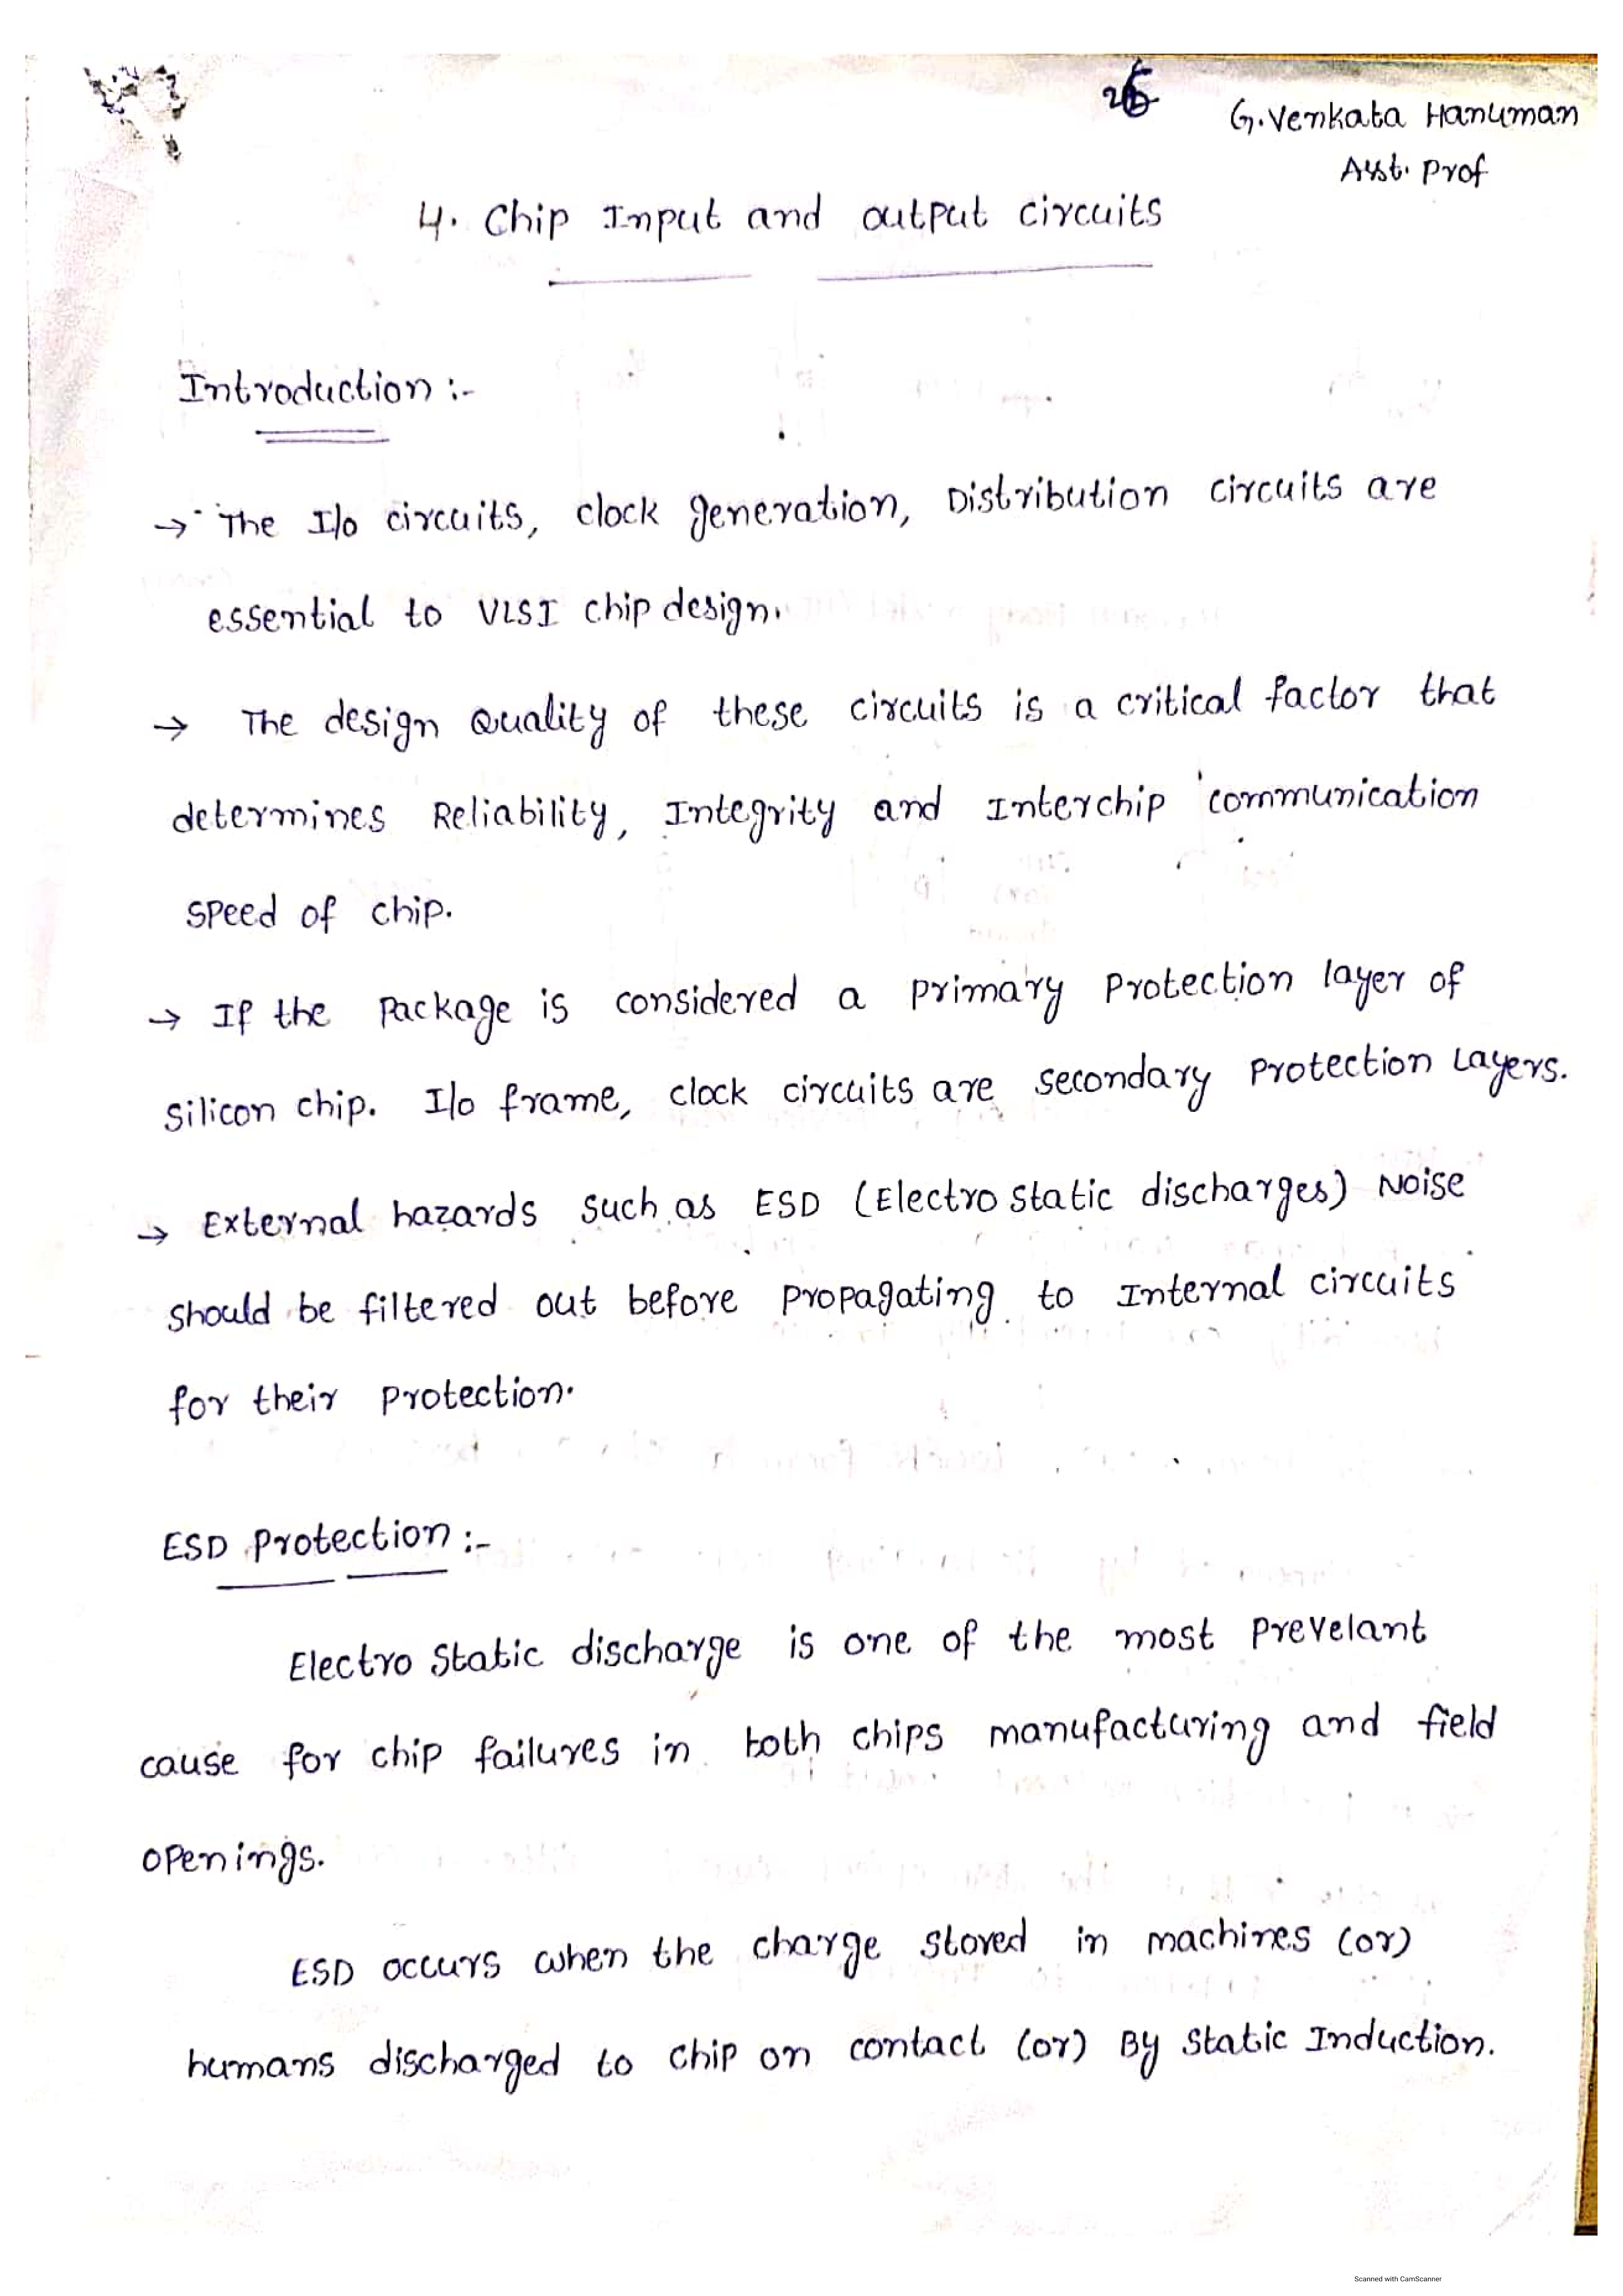 G. Venkata Hanuman
Asst. Prof
4. Chip Input and output circuits
Introduction :-
→ The I/o circuits, clock generation, Distribution circuits are
essential to VLSI chip design.
→ The design Quality of these circuits is a critical factor that
determines Reliability, Integrity and Interchip communication
speed of chip.
→ If the Package is considered a primary Protection layer of
silicon chip. I/o frame, clock circuits are secondary Protection Layers.
→ External hazards such as ESD (Electro static discharges) Noise
should be filtered out before propagating to Internal circuits
for their Protection.
ESD Protection :-
Electro static discharge is one of the most Prevelant
cause for chip failures in both chips manufacturing and field
openings.
ESD occurs when the charge stored in machines (or)
humans discharged to chip on contact (or) By static Induction.
Scanned with CamScanner